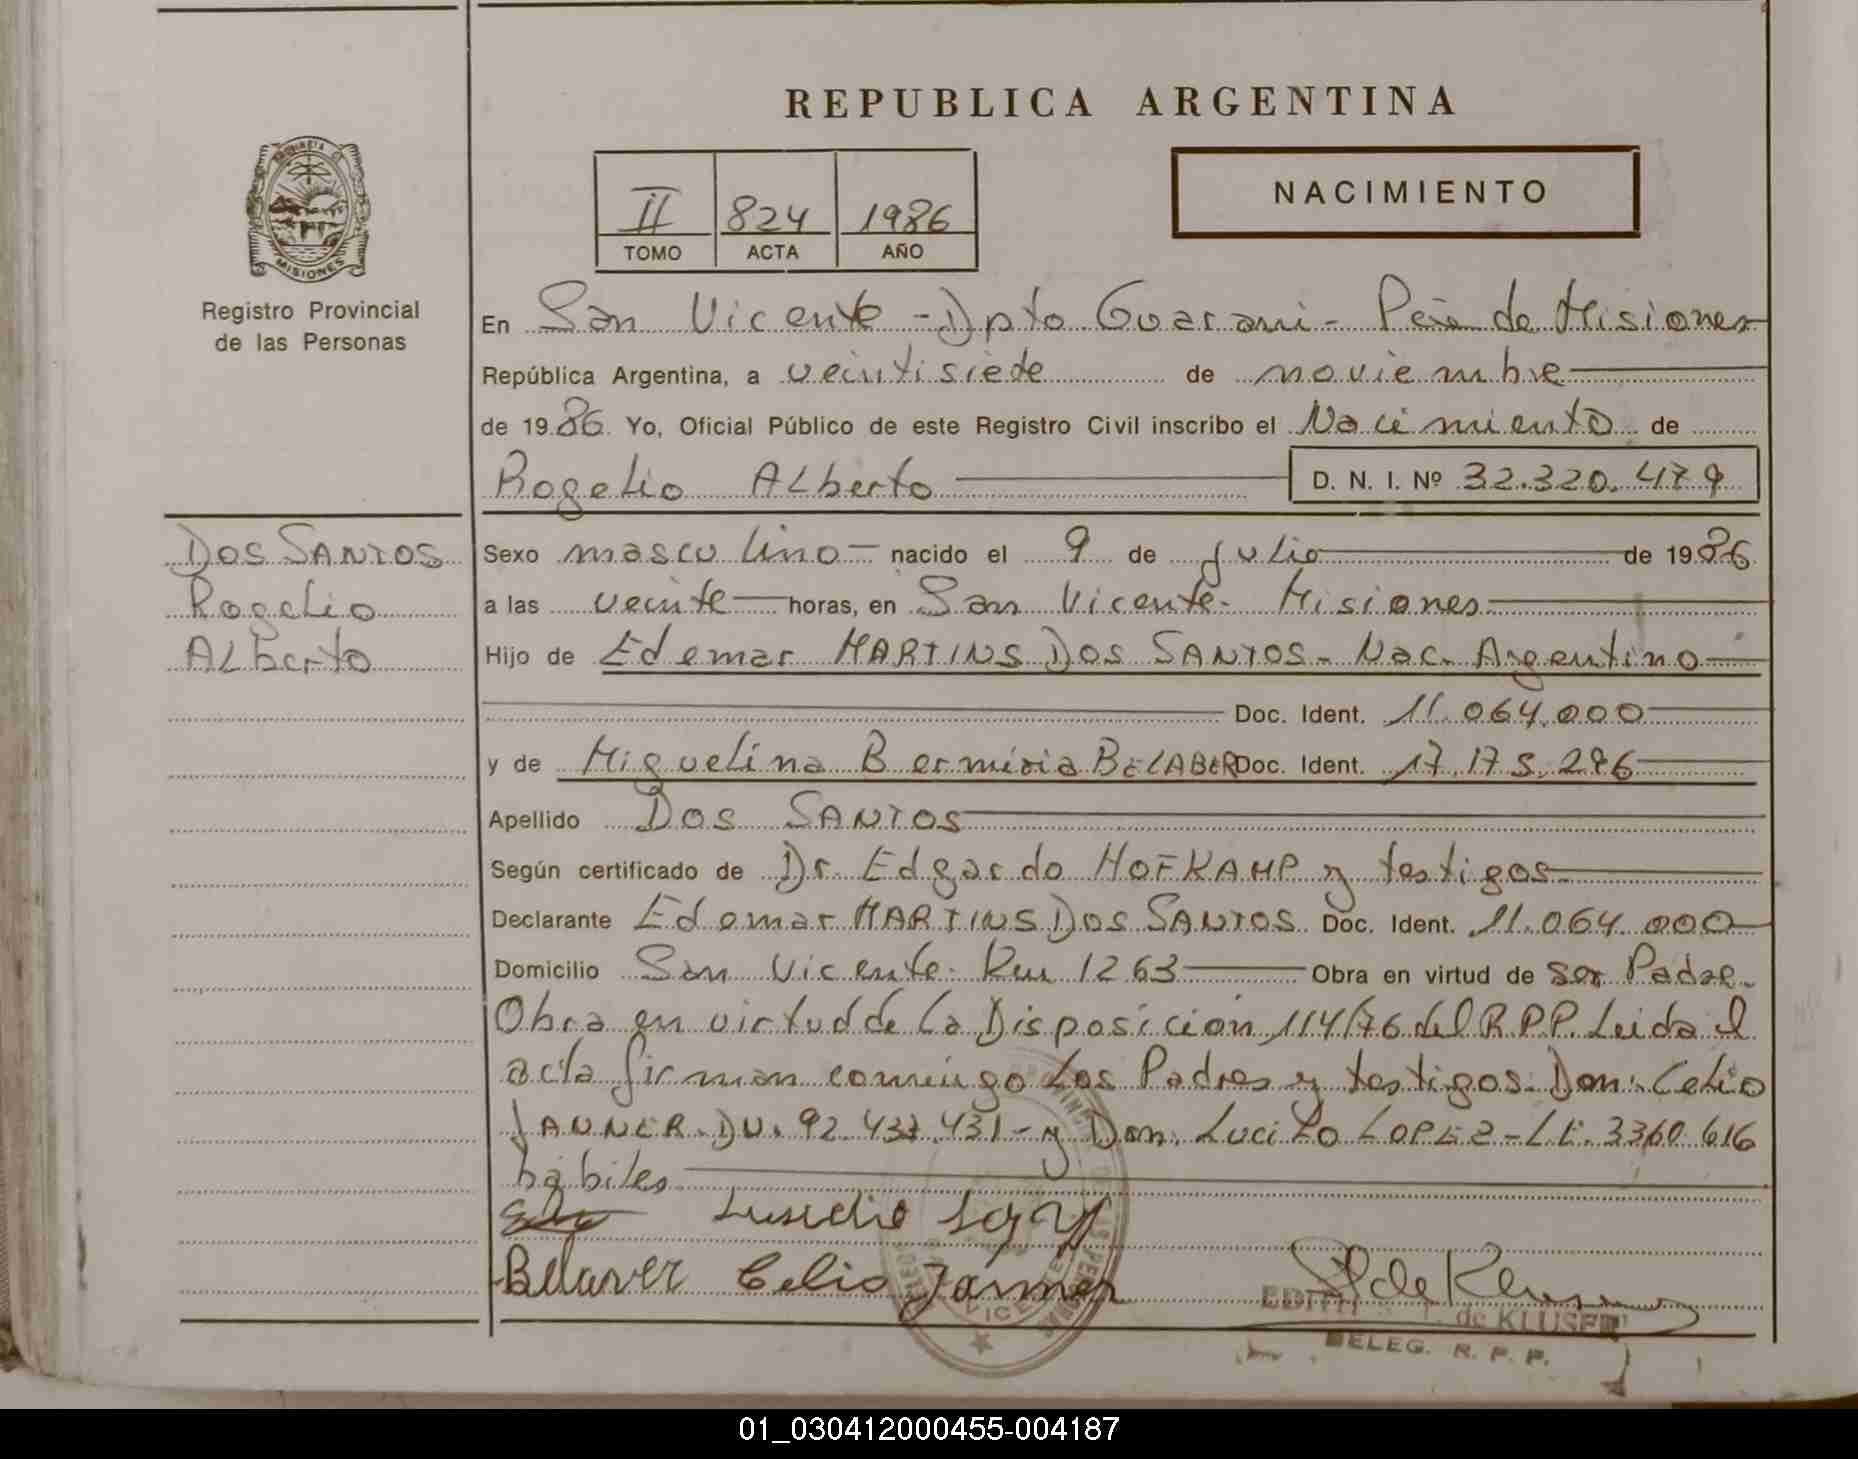 REPUBLICA ARGENTINA
II 824 1986
TOMO ACTA AÑO
NACIMIENTO
MISIONES
Registro Provincial
de las Personas
En San Vicente - Dpto Guarani - Pcia de Misiones
República Argentina, a veintisiete de noviembre
de 1986 Yo, Oficial Público de este Registro Civil inscribo el Nacimiento de
Rogelio Alberto D. N. I. Nº 32.320.479
DOS SANTOS
Rogelio
Alberto
Sexo masculino - nacido el 9 de julio de 1986
a las veinte horas, en San Vicente - Misiones
Hijo de Edemar MARTINS DOS SANTOS - Nac. Argentino
Doc. Ident. 11.064.000
y de Miguelina BELABER Doc. Ident. 17.175.296
Apellido DOS SANTOS
Según certificado de Dr. Edgardo HOFKAMP y testigos
Declarante Edemar MARTINS DOS SANTOS Doc. Ident. 11.064.000
Domicilio San Vicente - Km 1263 Obra en virtud de ser Padre.
Obra en virtud de la Disposición 114/76 del R.P.P. Leida el
acta firman conmigo los Padres y testigos Don: Celio
JANNER. DU. 92.437.431 - y Don. Lucilo LOPEZ - LE. 3360.616
hábiles
Bellaver Celio Janner
EDITH de KLUSER
DELEG. R. P. P.
01_030412000455-004187